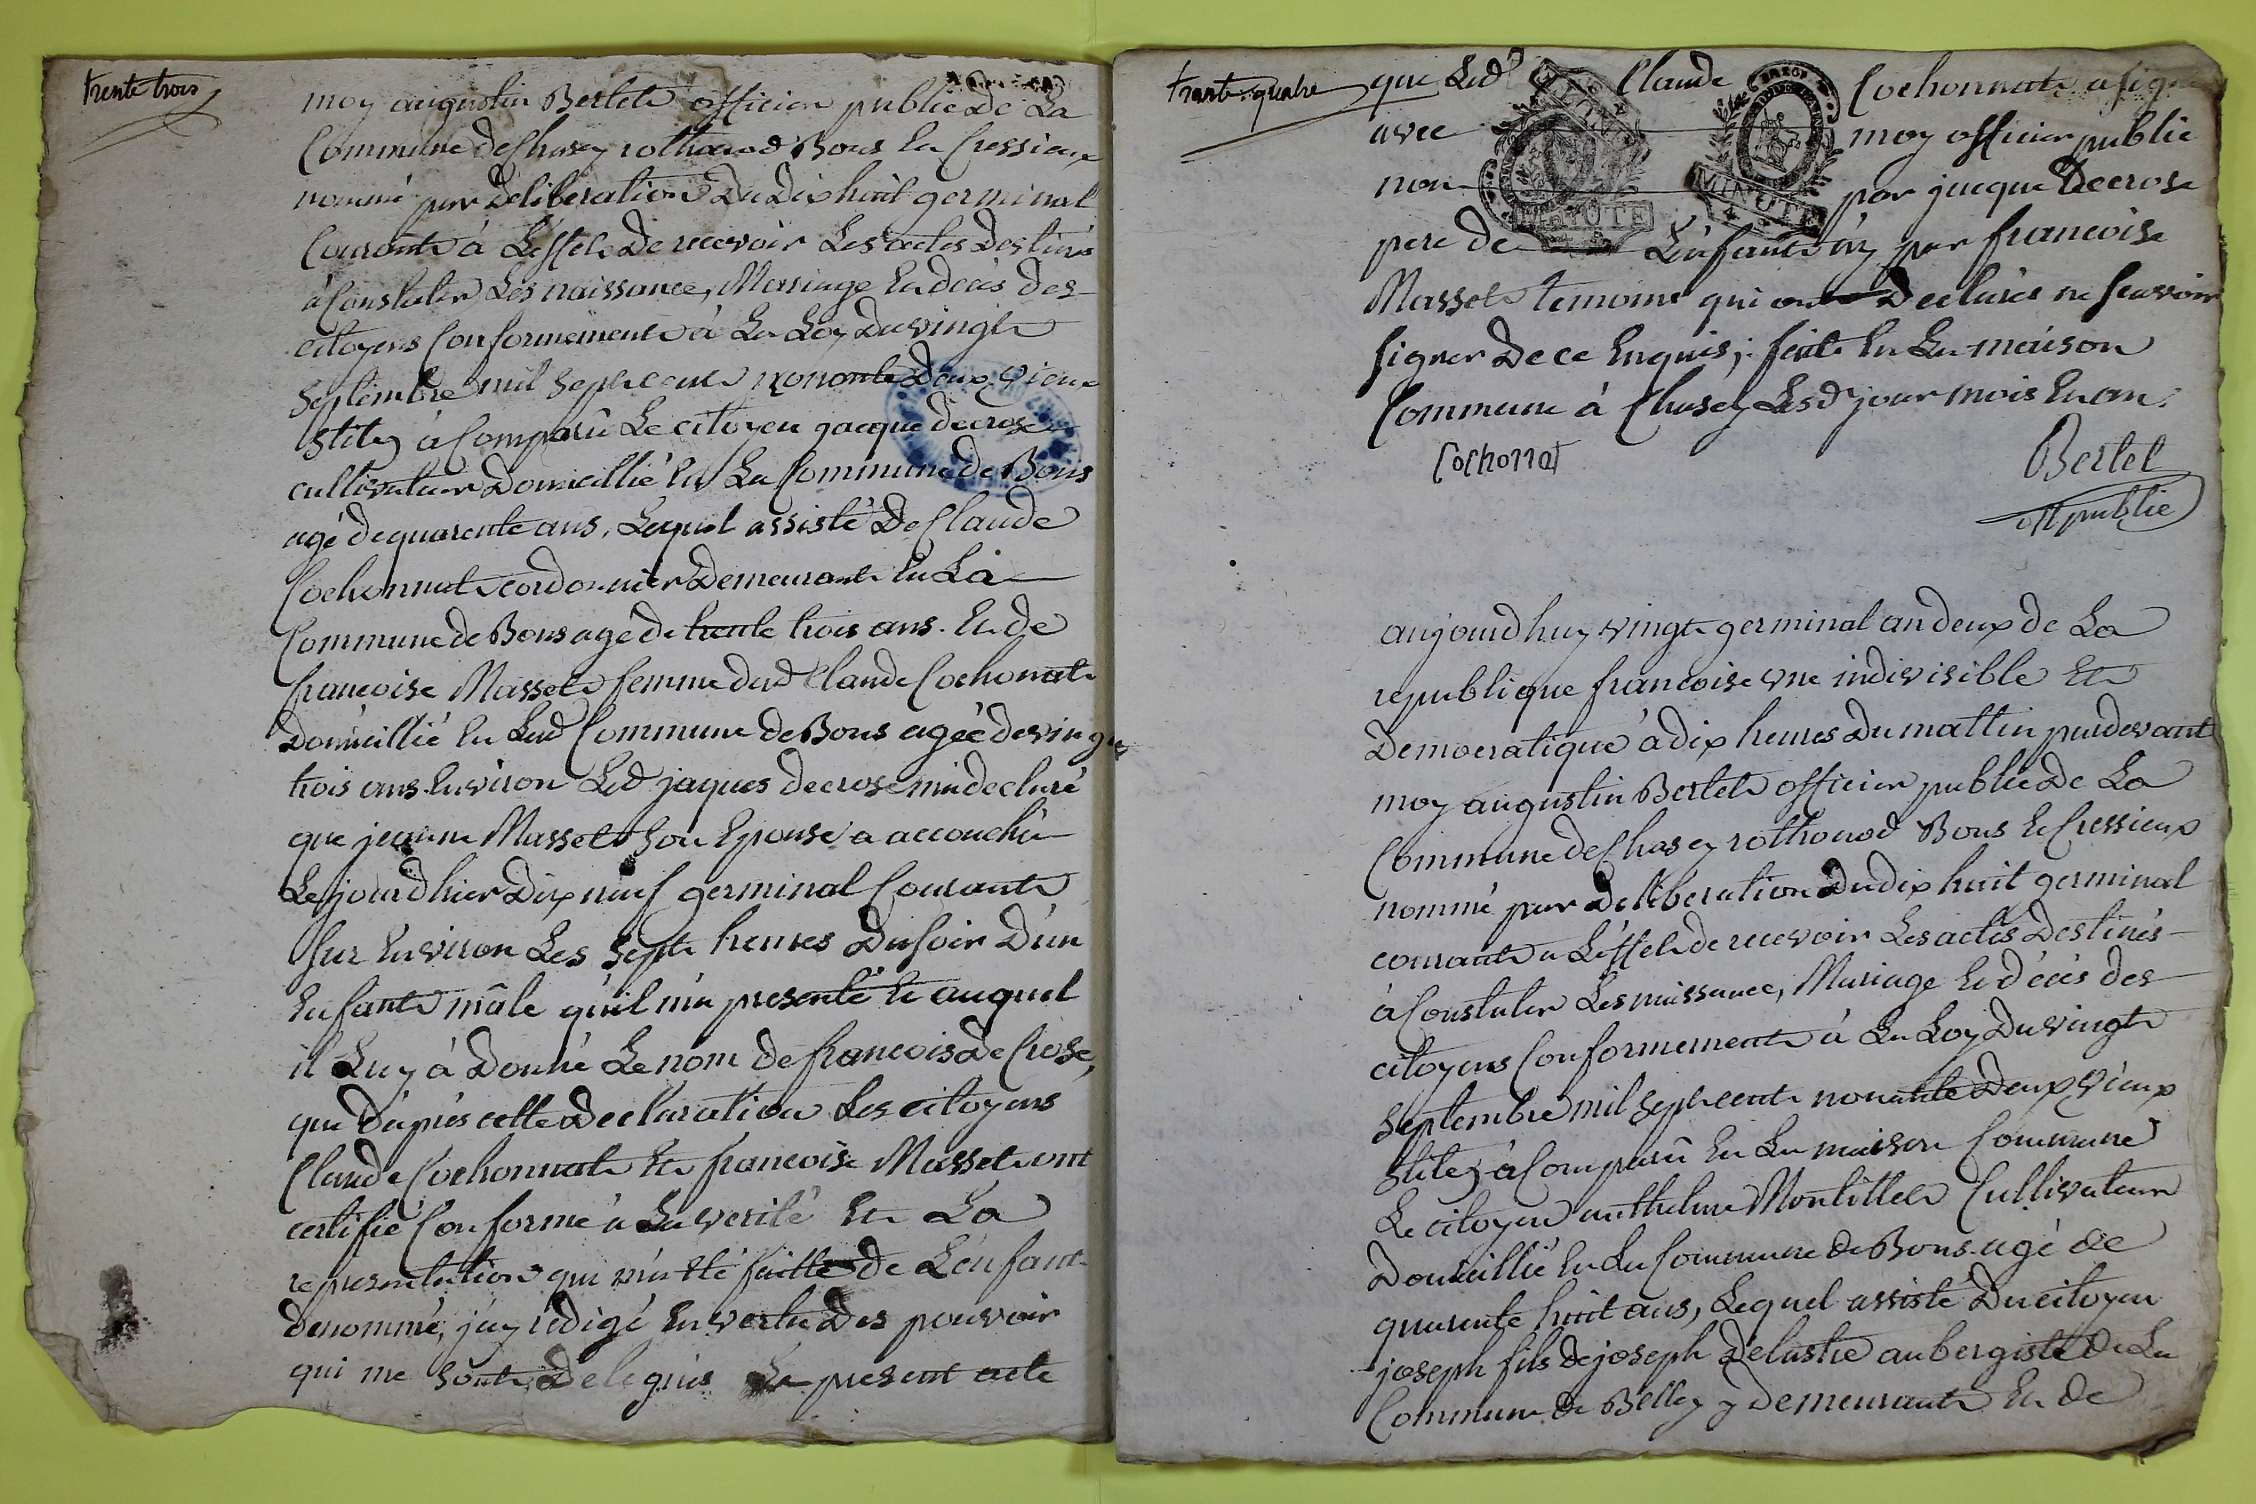 trente trois
moy augustin Bertet officier public de La
Commune de Chasey rothonod Bons Et Cressieux
nommé par deliberation du dix huit germinal
Courant à L'effet de recevoir Les actes destinés
à Constater Les naissance, Mariage Et decès des
citoyens Conformement à La Loy du vingt
septembre mil sept cent nonante deux vieux
stile, à Comparû Le citoyen jacque decrose
cultivateur domicillié En La Commune de Bons
agé de quarente ans, Lequel assisté de Claude
Cochonnat cordonnier demeurant En La
Commune de Bons agé de trente trois ans. Et de
francoise Masset femme dud Claude Cochonat
domicillié En Lad Commune de Bons agée de vingt
trois ans Environ Led jaques decrose m'a declaré
que jeanne Masset son Epouse a accouchée
Le jourdhier dix neuf germinal Courant
sur Environ Les sept heures du soir d'un
Enfant mâle qu'il m'a presenté Et auquel
il Luy à donné Le nom de francois de Crose,
que d'après cette declaration Les citoyens
Claude Cochonnat Et francoise Masset ont
certifié Conforme à La verité Et La
representation qui m'a été faitte de L'enfant
denommé, j'ay rédigé En vertu des pouvoir
qui me sont delegués Le present acte
trante quatre
que Led Claude Cochonnat a signé
avec moy officier public
non par jacque decrose
pere de L'enfant ny par francoise
Masset temoins qui ont declarés ne scavoir
signer de ce Enquis, fait En La maison
Commune à Chasey Lesd jour mois Et an.
MINUTE
MINUTE
Cochonat
Bertet
off public
aujourdhuy vingt germinal an deux de La
republique francoise une indivisible Et
Democratique à dix heures du mattin pardevant
moy augustin Bertet officier public de La
Commune de Chasey rothonod Bons Et Cressieux
nommé par deliberation du dix huit germinal
courant a L'effet de recevoir Les actes destinés
à Constater Les naissance, Mariage Et décès des
citoyens Conformement à La Loy du vingt
septembre mil sept cent nonante deux vieux
stile, à Comparû En La maison Commune
Le citoyen anthelme Montillet Cultivateur
domicillié En La Commune de Bons agé de
quarente huit ans, Lequel assisté du citoyen
joseph fils de joseph Delastre aubergiste de La
Commune de Belley y demeurant Et de